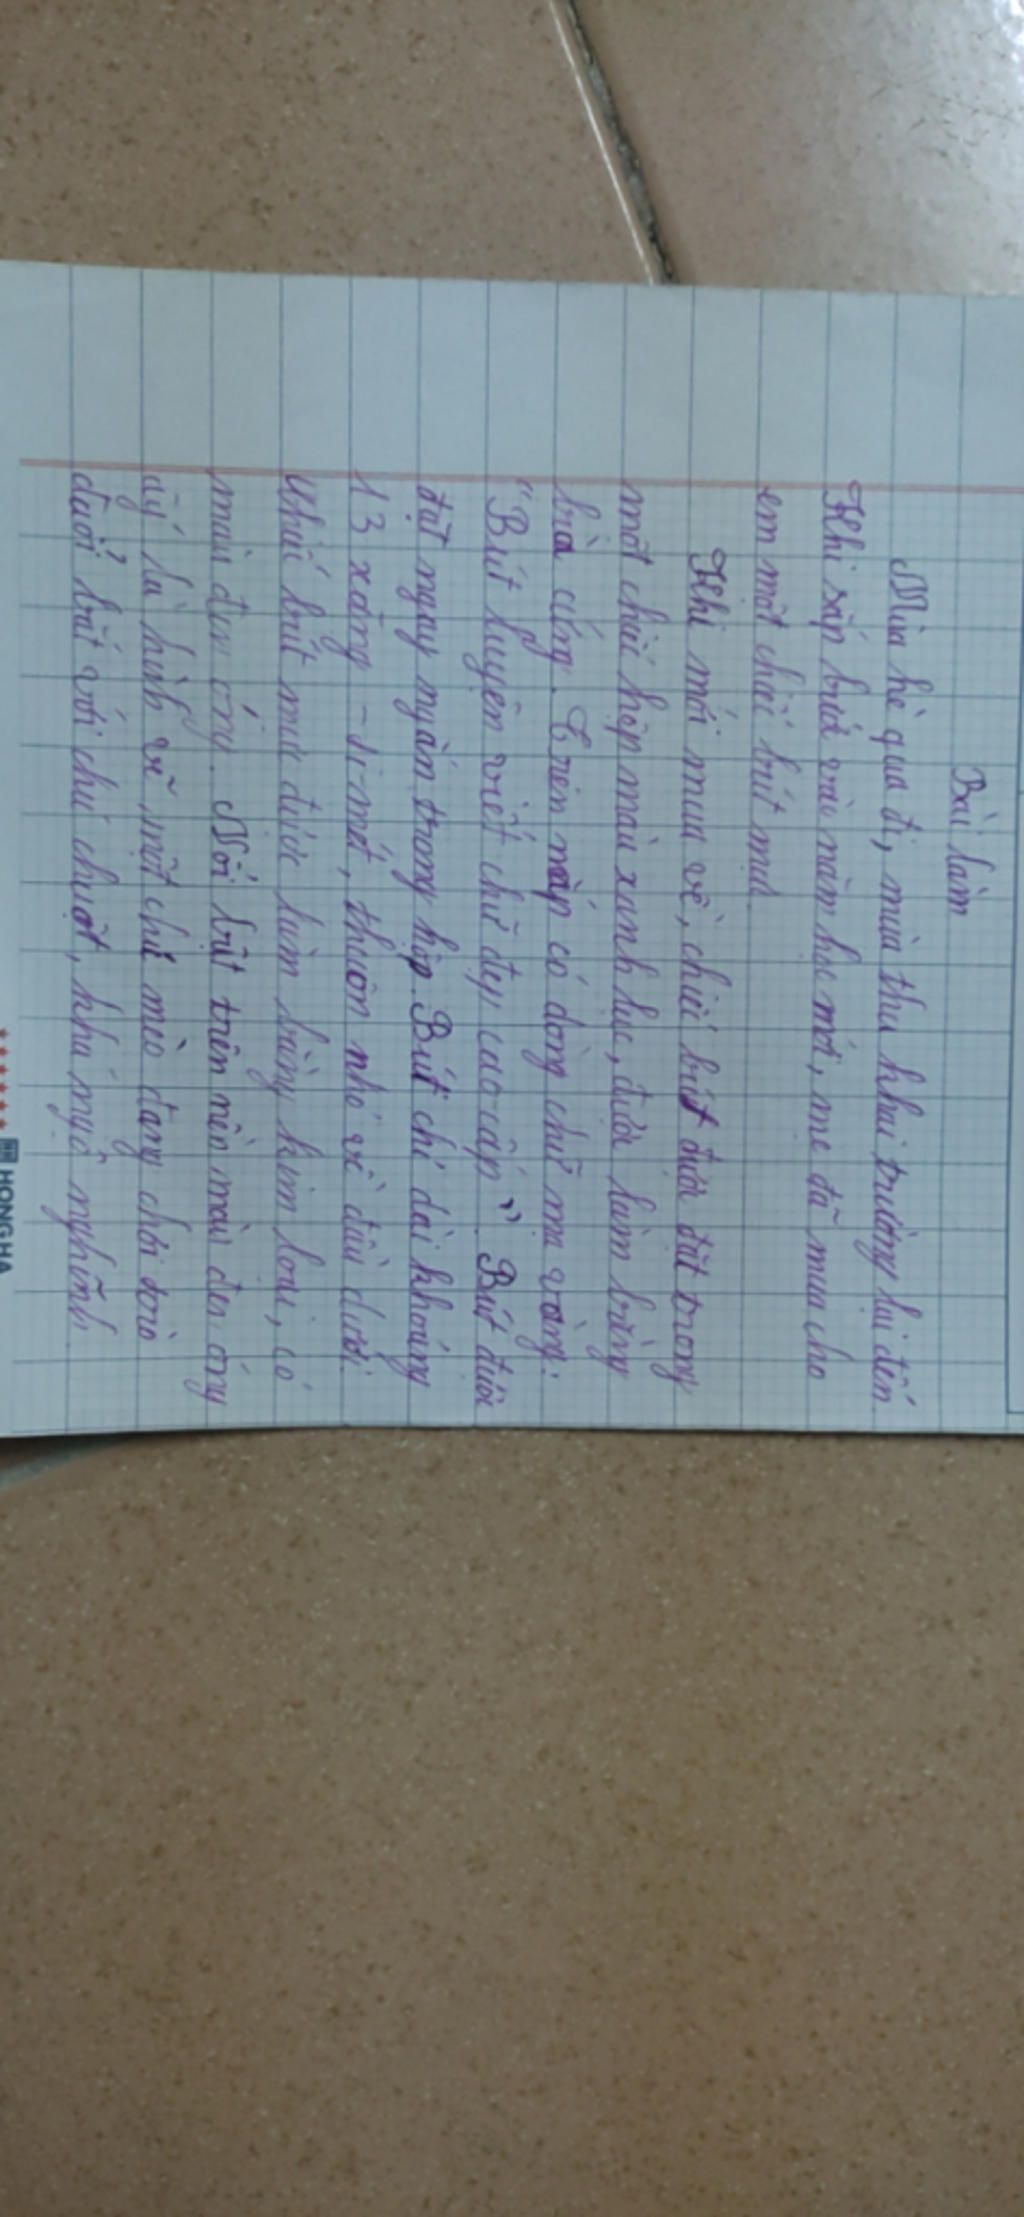 Bài làm
Mùa hè qua đi, mùa thu khai trường lại đến
Khi sắp bước vào năm học mới, mẹ đã mua cho
em một chiếc bút mực.
Khi mới mua về, chiếc bút được đặt trong
một chiếc hộp màu xanh lục, được làm bằng
bìa cứng. Trên nắp có dòng chữ mạ vàng:
"Bút luyện viết chữ đẹp cao cấp". Bút được
đặt ngay ngắn trong hộp. Bút chỉ dài khoảng
13 xăng-ti-mét, thuôn nhỏ về đầu dưới.
Chiếc bút mực được làm bằng kim loại, có
màu đen óng. Nổi bật trên nền màu đen óng
ấy là hình vẽ một chú mèo đang chơi trò
đuổi bắt với chú chuột, khá ngộ nghĩnh.
HONG HA